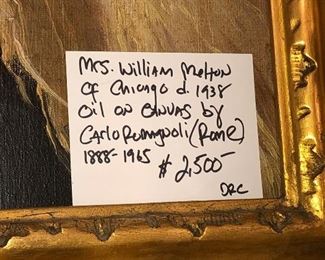 Mrs. William Melton
of Chicago d. 1938
Oil on Canvas by
Carlo Romagnoli (Rome)
1888-1965
$2,500-
DRC